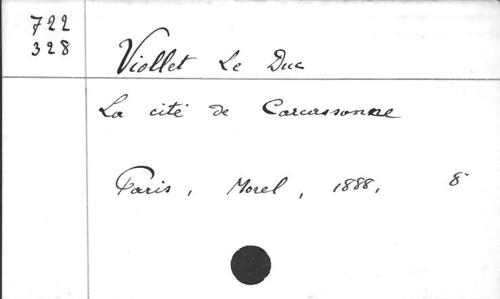 722
328
Viollet Le Duc
La cité de Carcassonne
Paris, Morel, 1888, 8°